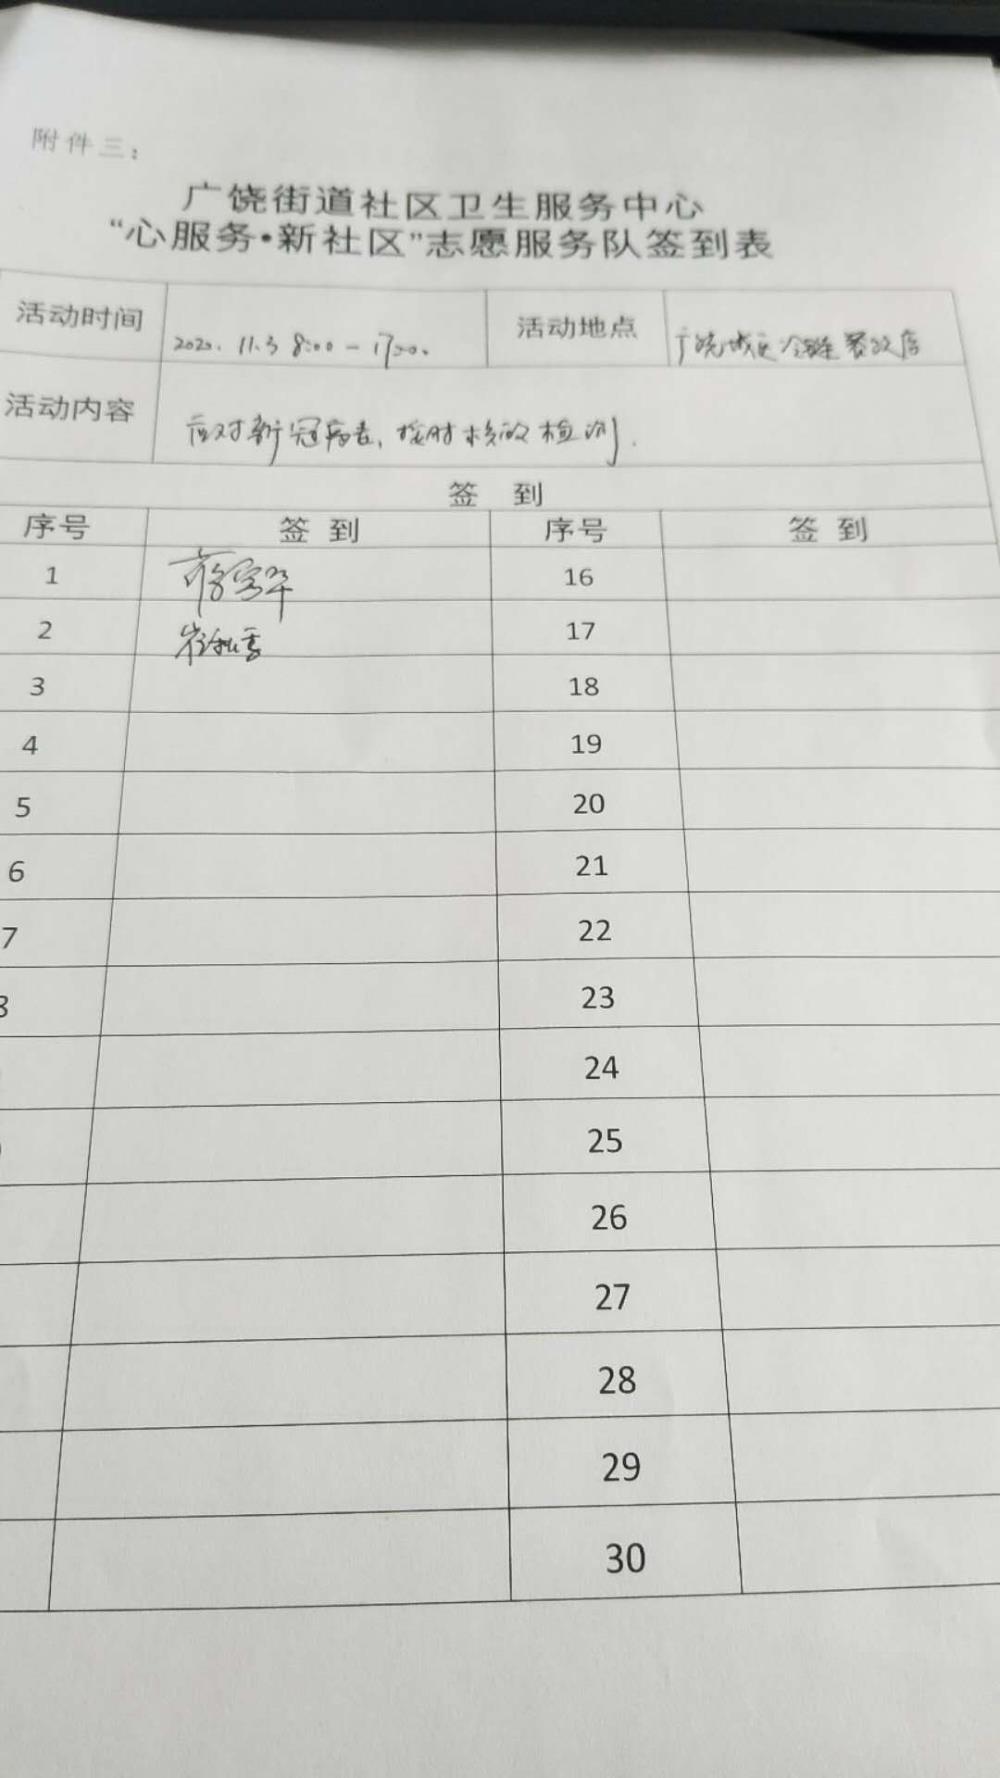 附件三：
广饶街道社区卫生服务中心
“心服务•新社区”志愿服务队签到表
活动时间 2020. 11.3 8:00 - 17:00. 活动地点 广饶城区冷链
活动内容 应对新冠病毒, 按时核酸检测.
签 到
序号 签 到 序号 签 到
1 16
2 17
3 18
4 19
5 20
6 21
7 22
8 23
24
25
26
27
28
29
30